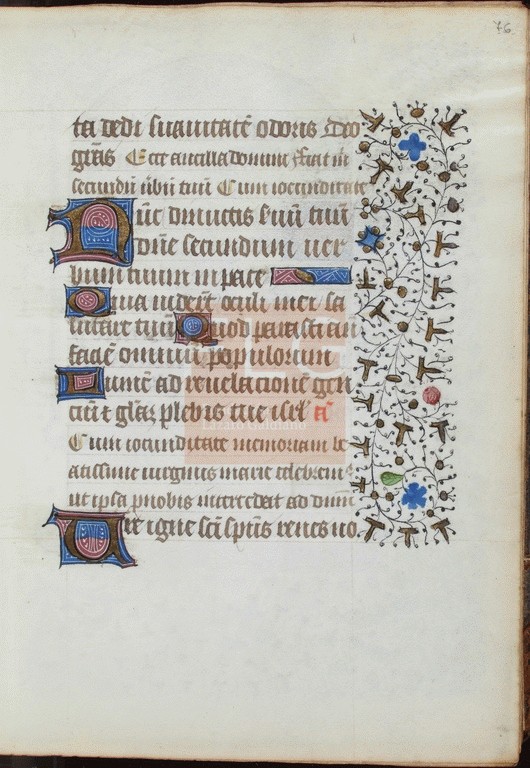 76
ta dedi suauitatē odoris Deo
grās Ecce ancilla domini fiat m
secūdū ūbū tuū Cum iocunditate
Nūc dimictis seruū tuū
dn̄e secundum uer
bum tuum in pace
Quia uiderūt oculi mei sa
lutare tuū Quod parasti an
faciē omniū populorum
Lumē ad reuelacionē gen
ciū et glāꝫ plebis tue isrl' añ
Cum iocunditate memoriam be
atissime uirginis marie celebrem'
ut ipsa pro nobis intercedat ad dnm̄
Vre igne sc̄i spūs renes no
Lázaro Galdiano